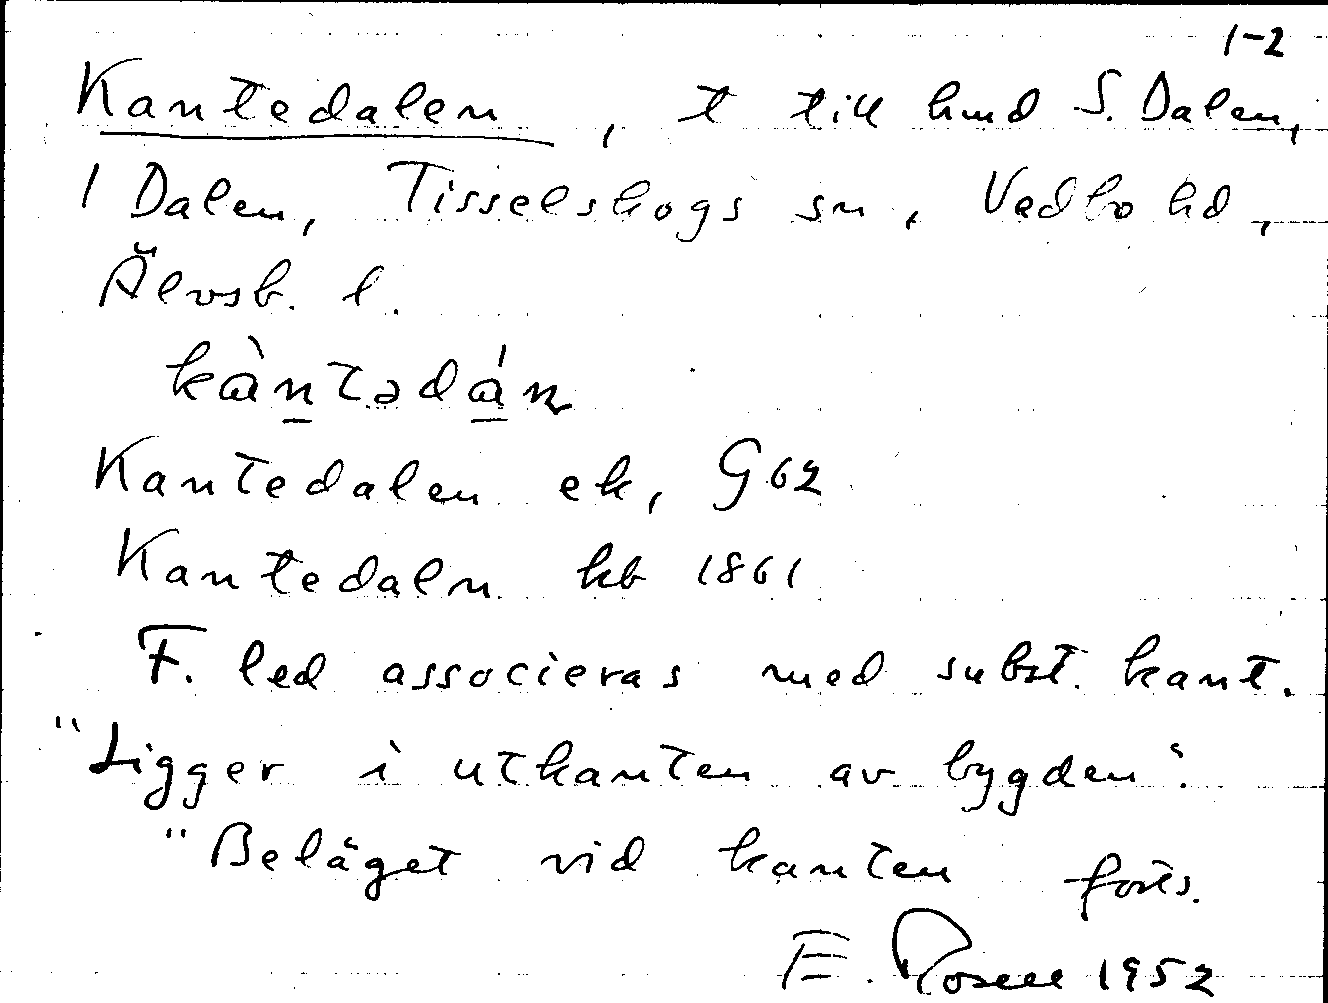 1-2
Kantedalen, t till hmd S. Dalen,
1 Dalen, Tisselskogs sn, Vedbo hd,
Älvsb. l.
kàntədán
Kantedalen ek, G62
Kantedaln kb 1861
F. led associeras med subst. kant.
"Ligger i utkanten av bygden".
"Beläget vid kanten forts.
E. Rosell 1952